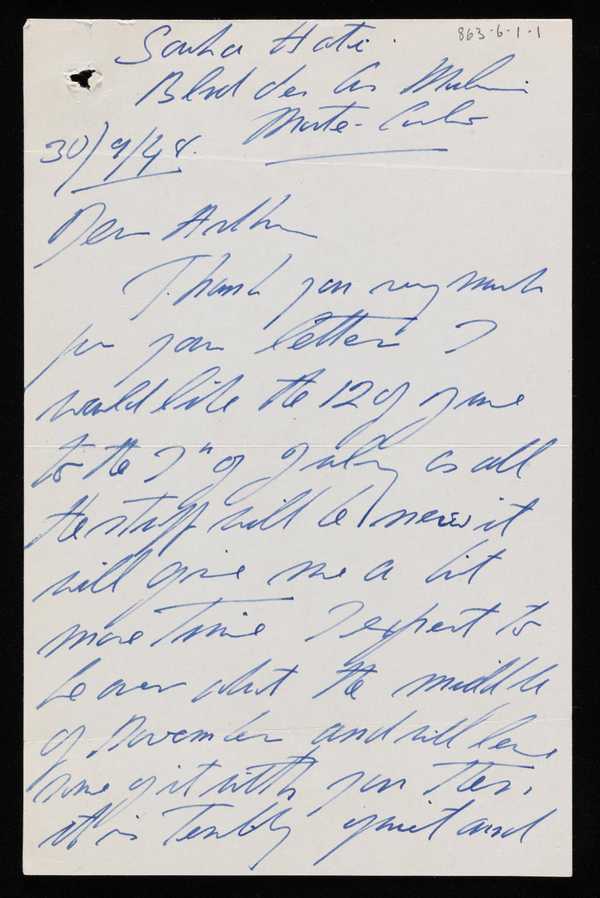 863-6-1-1
Hotel
Blvd des Moulins
Monte-Carlo
30/9/48.
Dear Arthur
Thank you very much
for your letter I
would like the 12 of June
to the 7" of July as all
the stuff will be new it
will give me a bit
more Time I expect to
be over about the middle
of November and will leave
some of it with you then,
it is Terribly quiet and